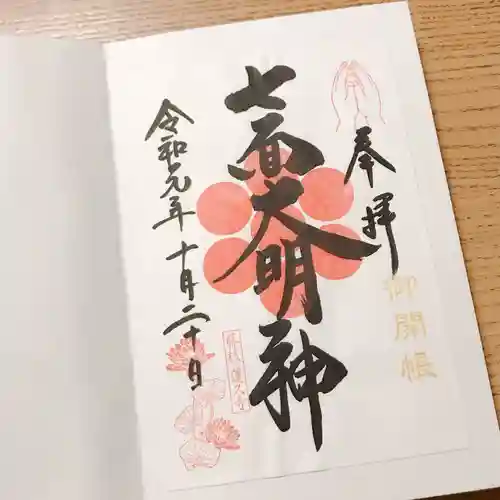 奉拝
御開帳
七面大明神
令和元年十月二十日